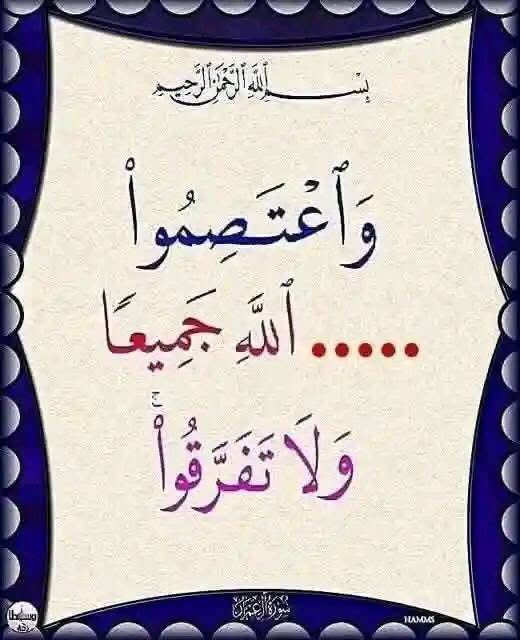 بِسْمِ ٱللَّهِ ٱلرَّحْمَٰنِ ٱلرَّحِيمِ
وَٱعْتَصِمُوا۟
..... ٱللَّهِ جَمِيعًا
وَلَا تَفَرَّقُوا۟ ۚ
سُورَةُ آلِ عِمْرَانَ
HAMMS